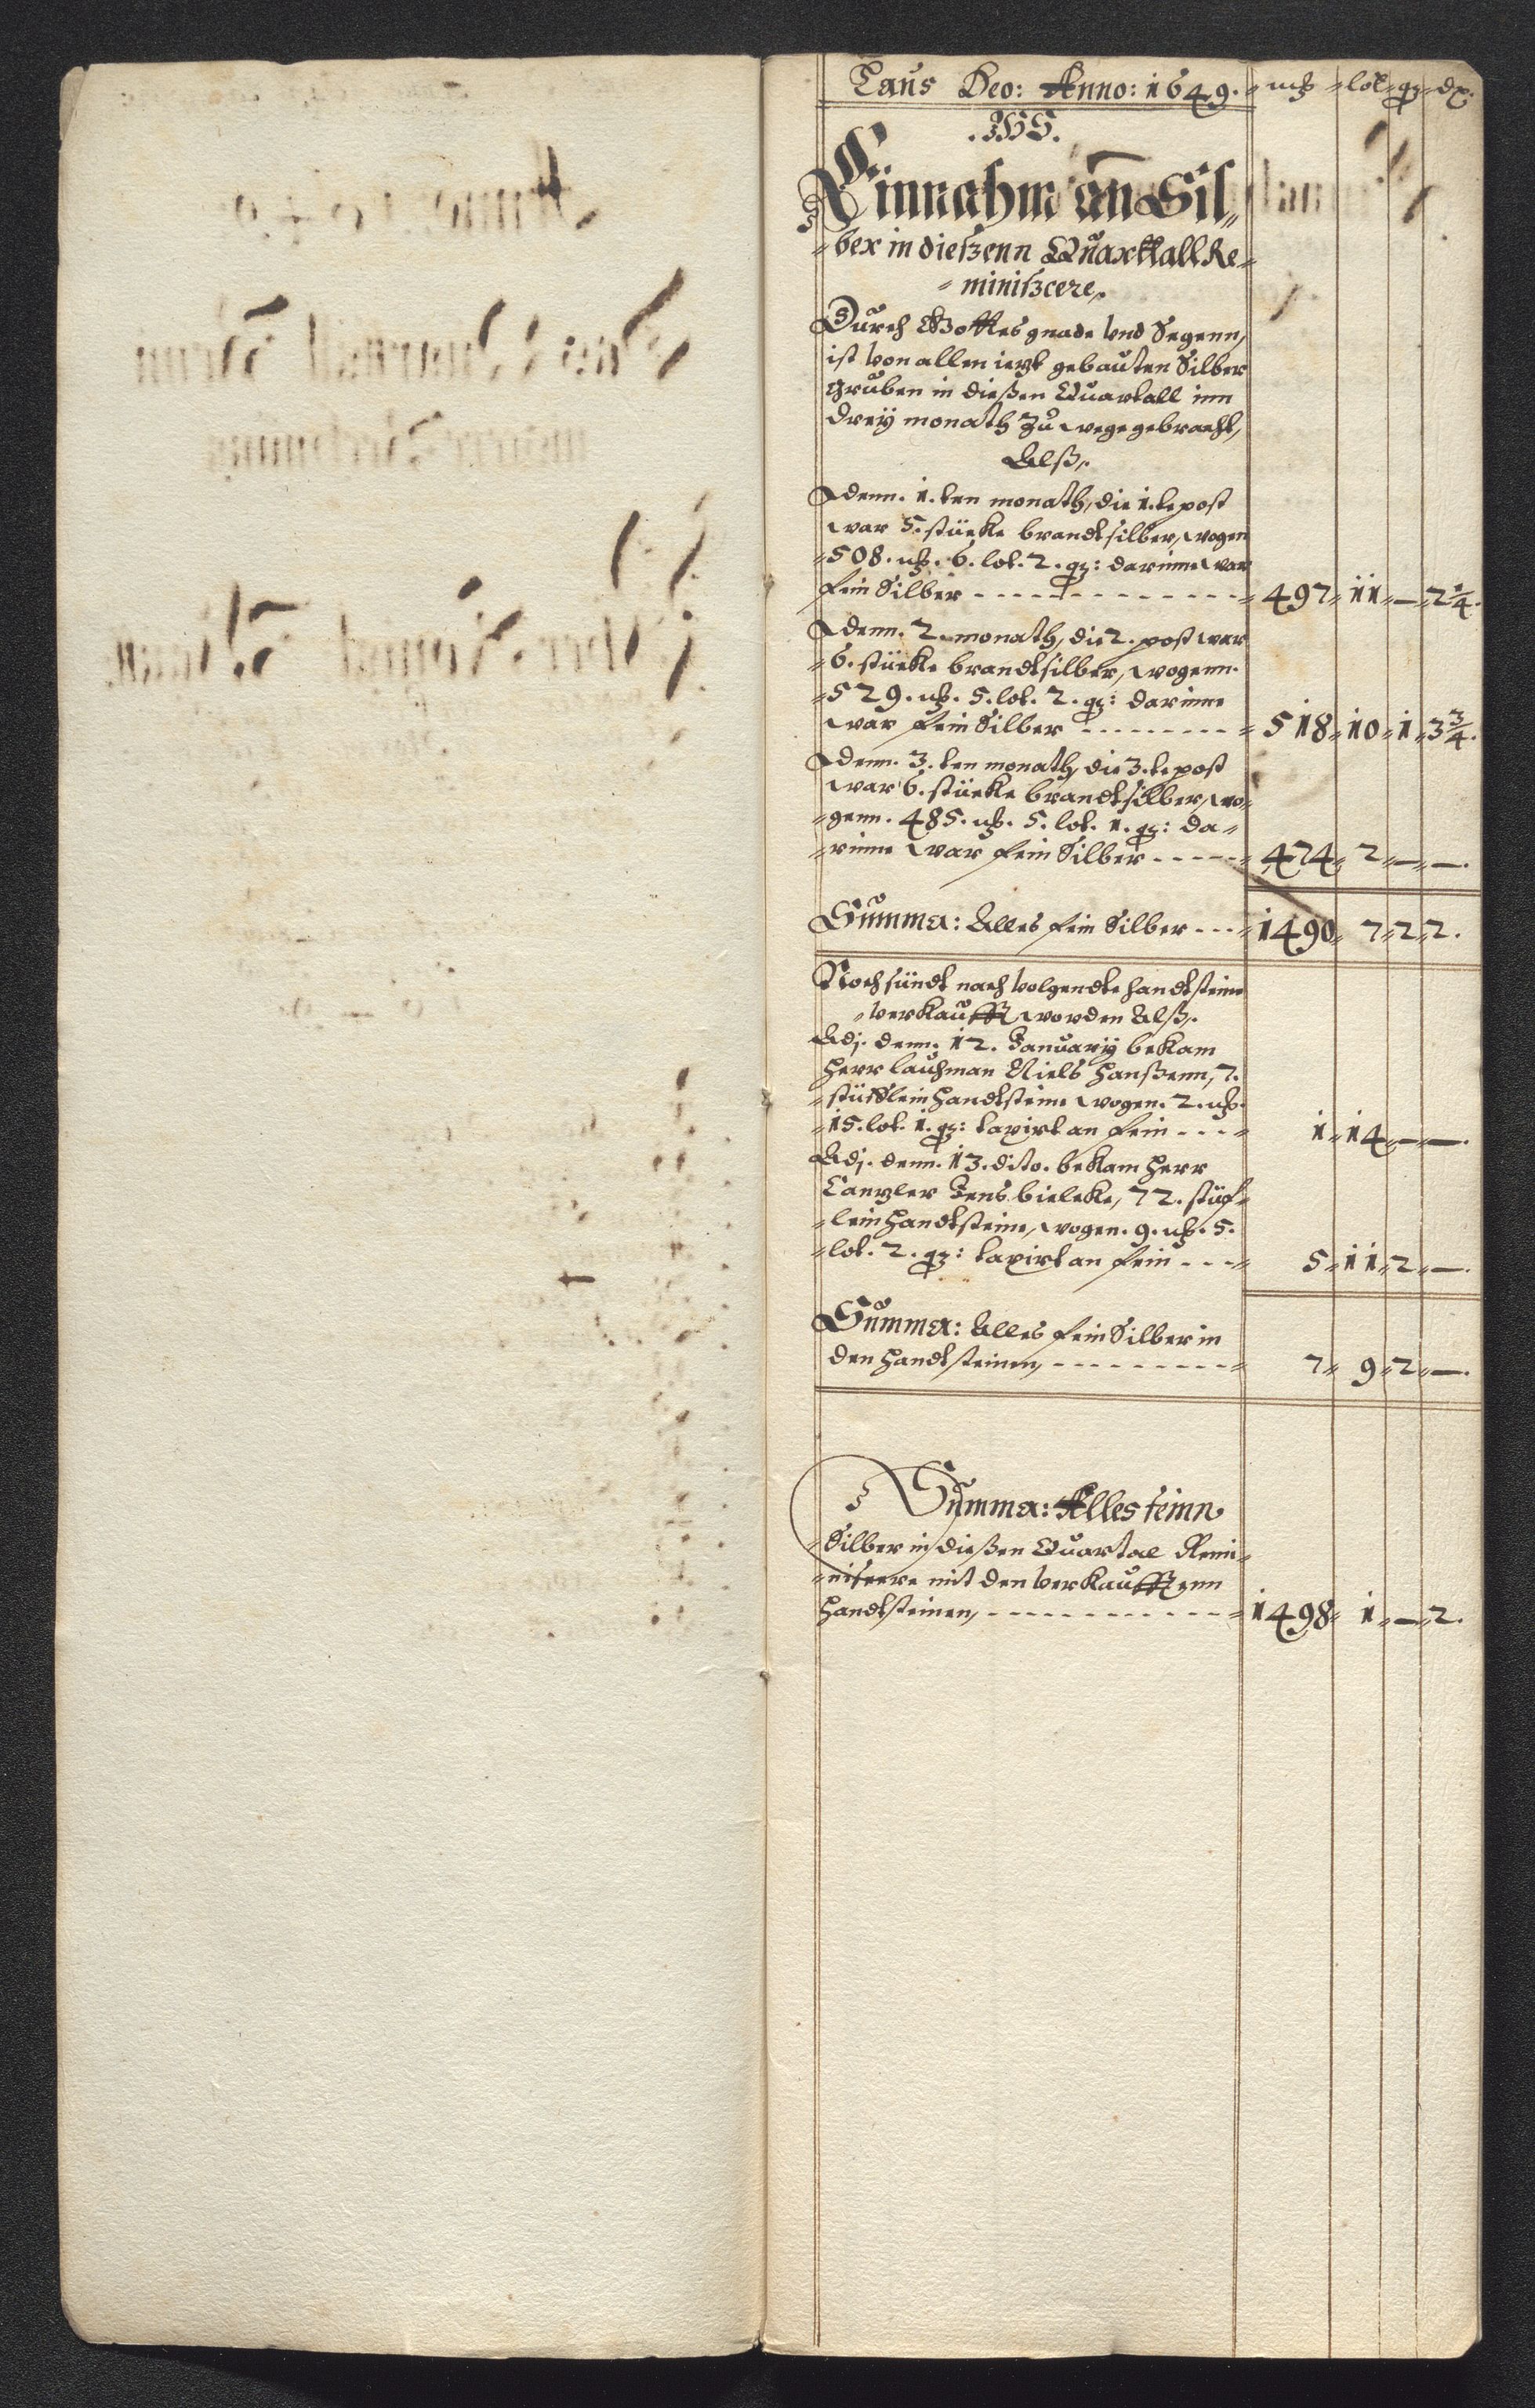 Laus Deo: Anno: 1649. mk lot qz dx.
.IHS.
Einnahm an Sil„
„ber in dieszenn Quarttall Re„
„miniszcere,
Durch Gottes gnade vnd Segenn,
ist von allen ietzt gebauten Silber
Gruben in dießen Quartall inn
dreÿ monath Zu wege gebracht,
Alß,
Adenn. 1. ten monath, die 1. te post
war 5. stücke brandtsilber, wogen
„508. mk. 6. lot. 2. qz: darinne war
fein Silber - - - - - - „ 497„ 11„ —„ 2 1/4.
Adenn. 2. monath, die 2. post war
„6. stücke brandtsilber, wogenn.
„529. mk. 5. lot. 2. qz: darinne
war fein Silber - - - - - „ 518„ 10„ 1„ 3 3/4.
Adenn. 3. ten monath, die 3. te post
war 6. stücke brandtsilber, wo„
„genn. 485. mk. 5. lot. 1. qz: da„
„rinne war fein Silber - - - „ 474„ 2„ —„ —.
Summa: Alles fein Silber - - - „ 1490„ 7„ 2„ 2.
Noch sündt nach volgendte handtsteine
„verkaufft worden Alß,
Adj. denn. 12. Januarÿ bekam
Herr lauhman Niels Hanßenn, 7.
„stüfflein Handtsteine wogen. 2. mk.
„15. lot. 1. qz: taxirt an fein - - - „ 1„ 14„ —„ —.
Adj. denn. 13. dito. bekam Herr
Cantzler Jens bielcke, 72. stüf„
„lein Handtsteine, wogen. 9. mk. 5.
„lot. 2. qz: taxirt an fein - - - „ 5„ 11„ 2„ —.
Summa: Alles fein Silber in
den Handtsteinen, - - - - - „ 7„ 9„ 2„ —.
Summa: Alles feinn
„Silber in dießen Quartal Remi„
„niscere mit den verkaufftenn
Handtsteinen, - - - - - - „ 1498„ 1„ —„ 2.